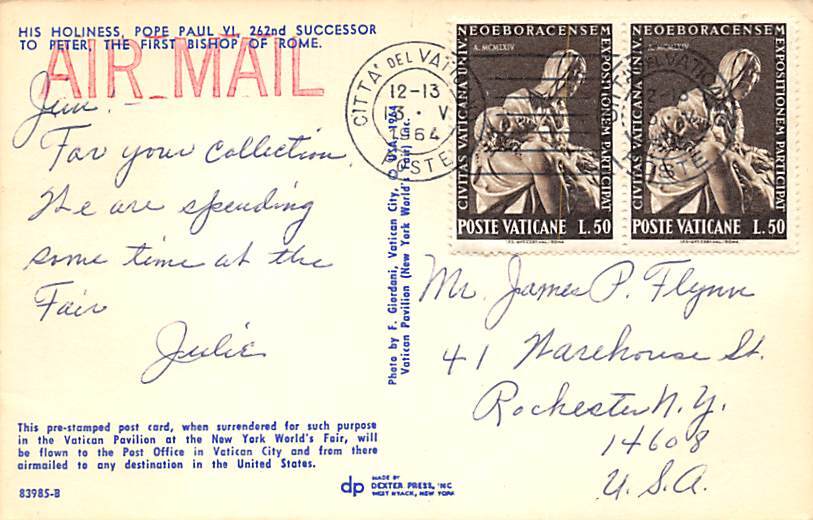 HIS HOLINESS, POPE PAUL VI, 262nd SUCCESSOR
TO PETER, THE FIRST BISHOP OF ROME.
AIR MAIL
Jim.
For your collection.
We are spending
some time at the
Fair
Julie
This pre-stamped post card, when surrendered for such purpose
in the Vatican Pavilion at the New York World's Fair, will
be flown to the Post Office in Vatican City and from there
airmailed to any destination in the United States.
83985-B
Photo by F. Giordani, Vatican City, © USA, 1964
Vatican Pavilion (New York World's Fair) Inc.
dp
MADE BY
DEXTER PRESS, INC
WEST NYACK, NEW YORK
CITTA' DEL VATICANO
12-13
V
1964
POSTE
CIVITAS VATICANA UNIV.
NEOEBORACENSEM
EXPOSITIONEM PARTICIPAT
A. MCMLXIV
POSTE VATICANE L.50
CIVITAS VATICANA UNIV.
NEOEBORACENSEM
EXPOSITIONEM PARTICIPAT
A. MCMLXIV
POSTE VATICANE L.50
Mr. James P. Flynn
41 Warehouse St.
Rochester N.Y.
14608
U.S.A.